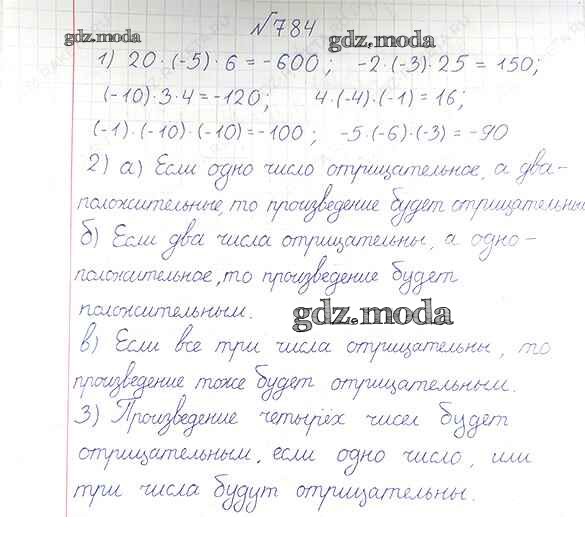 №784
gdz.moda
gdz.moda
1) 20·(-5)·6 = -600; -2·(-3)·25 = 150;
(-10)·3·4 = -120; 4·(-4)·(-1) = 16;
(-1)·(-10)·(-10) = -100; -5·(-6)·(-3) = -90
2) а) Если одно число отрицательное, а два-
положительные, то произведение будет отрицательны
б) Если два числа отрицательны, а одно-
положительное, то произведение будет
положительным.
gdz.moda
в) Если все три числа отрицательны, то
произведение тоже будет отрицательным.
3) Произведение четырёх чисел будет
отрицательным, если одно число, или
три числа будут отрицательны.